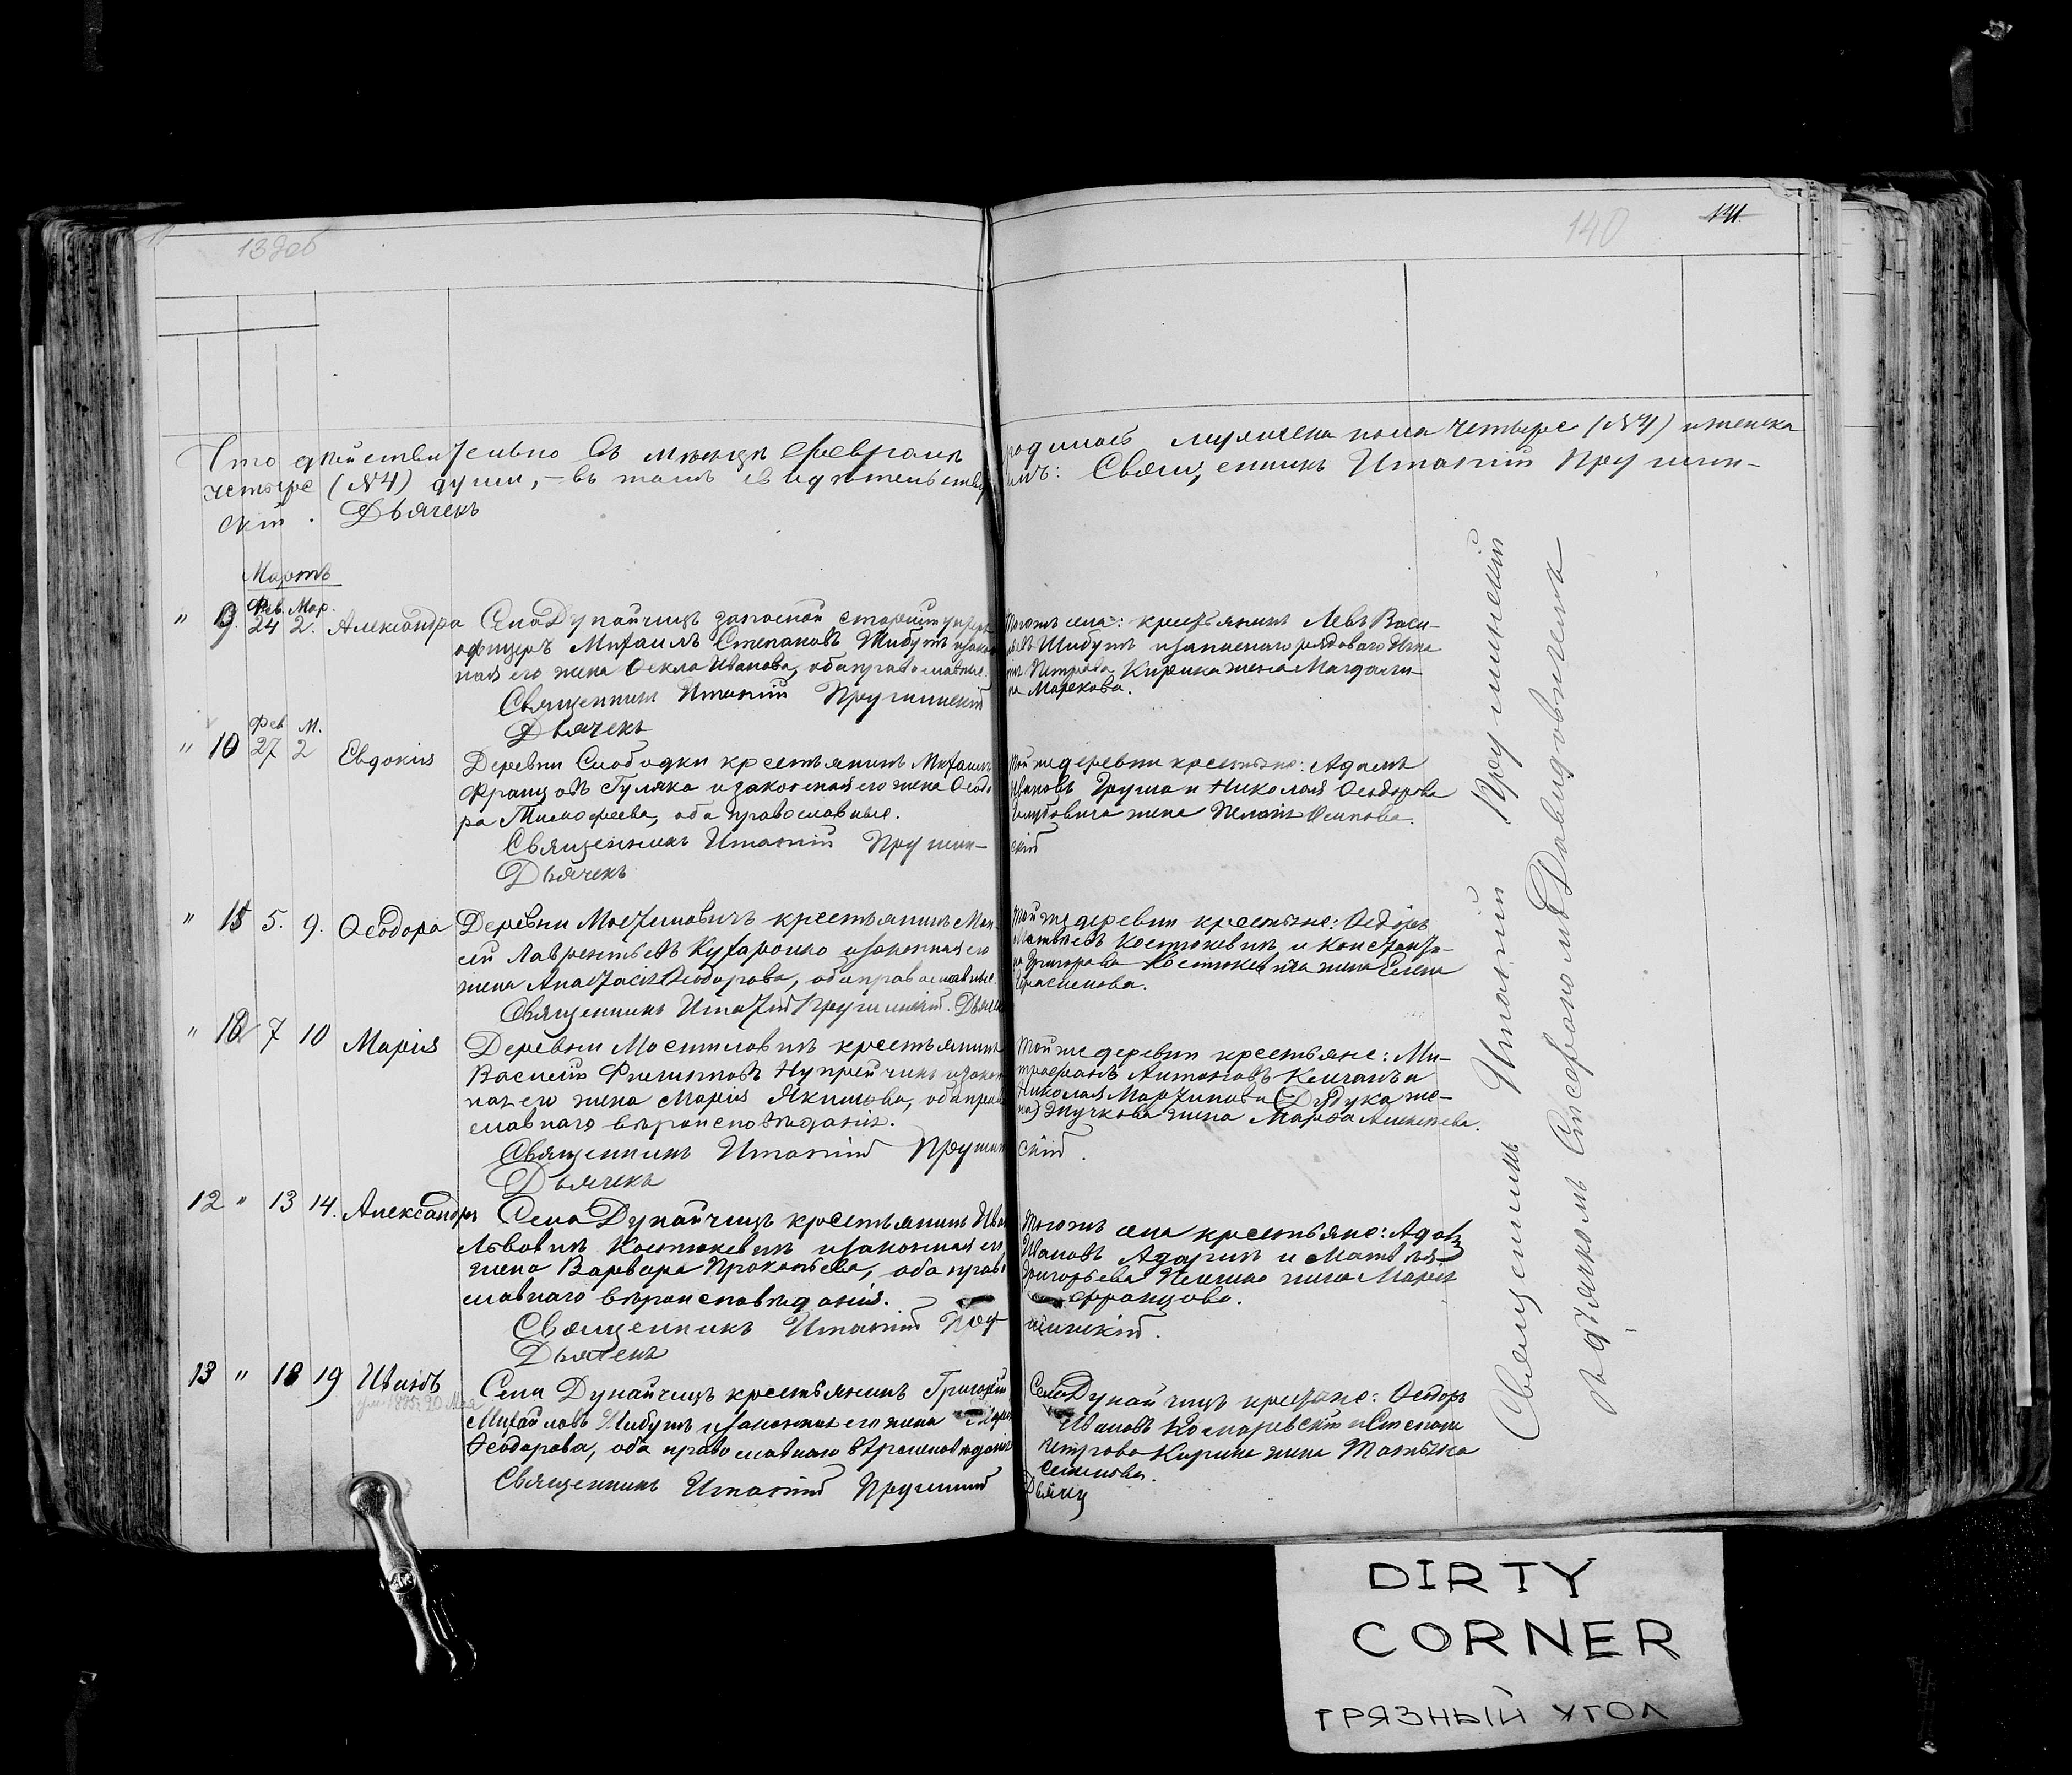 140
141.
Что действительно въ мѣсяцѣ Февралѣ родилось мужеска пола четыре (№4) и женска
четыре (№4) души, – въ томъ свидѣтельствуемъ: Священникъ Ипатій Прушин-
скій. Дьячекъ
Мартъ
Фев. Мар.
" 9. 24 2. Александра
Села Дунайчицъ запасной старшій унтеръ
офицеръ Михаилъ Степановъ Шибутъ и закон
ная его жена Ѳекла Иванова, оба православные.
Священникъ Ипатій Прушинскій
Дьячекъ
Тогожъ села: крестьянинъ Левъ Васи-
льевъ Шибутъ и запаснаго рядоваго Игна
тія Петрова Кирика жена Магдали-
на Марекова.
Фев М.
" 10 27 2 Евдокія
Деревни Слободки крестьянинъ Михаилъ
Францовъ Гуляка и законная его жена Ѳеодо
ра Тимофеева, оба православные.
Священникъ Ипатій Прушин-
скій
Дьячекъ
Той же деревни крестьяне: Адамъ
Ивановъ Груша и Николая Ѳеодорова
жена Пелагія Осипова.
" 11 5. 9. Ѳеодора
Деревни крестьянинъ Мои-
сей Лаврентьевъ Кухаронко и законная его
жена Анастасія Ѳеодорова, оба православные.
Священникъ Ипатій Прушинскій. Дьячекъ
Той же деревни крестьяне: Ѳедоръ
Матвѣевъ Костюкевичъ и Константи-
на Григорова Костюкевича жена Елена
Герасимова.
" 12 7 10 Марія
Деревни крестьянинъ
Василій Филиповъ Нупрейчикъ и закон
ная его жена Марія Якимова, оба право
славнаго вѣроисповѣданія.
Священникъ Ипатій Прушин
скій.
Дьячекъ
Той же деревни крестьяне: Ми-
трофанъ Антоновъ Кличанъ и
Николая Мартинова (Дудука же-
на) жена Марѳа Алексѣева.
12 " 13 14. Александръ
Села Дунайчицъ крестьянинъ Иванъ
Львовичъ Костюкевичъ и законная его
жена Варвара Прокопьева, оба право
славнаго вѣроисповѣданія.
Священникъ Ипатій Пру
шинскій.
Дьячекъ
Тогожъ села крестьяне: Адамъ
Ивановъ Адаричъ и Матвѣя
Григорьева жена Марія
Францова.
13 " 18 19 Иванъ
ум. 1885 г. 20 Мая
Села Дунайчицъ крестьянинъ Григорій
Михайловъ Шибутъ и законная его жена Марія
Ѳеодорова, оба православнаго вѣроисповѣданія
Священникъ Ипатій Прушинскій
Села Дунайчицъ крестьяне: Ѳеодоръ
Ивановъ Комаревскій и Степана
Петрова Кирика жена Татьяна
Семенова.
Дьячекъ
Священникъ Ипатій Прушинскій
DIRTY
CORNER
ГРЯЗНЫЙ УГОЛ